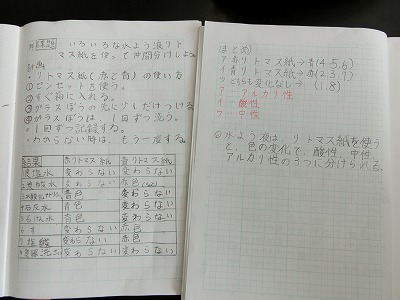 課題 いろいろな水よう液リト
マス紙を使って仲間分けしよう。
計画
・リトマス紙(赤と青)の使い方
①ピンセットを使う。
②すぐ箱に入れる。
③ガラスぼうの先に少しだけつける
④ガラスぼうは、1回ずつ洗う。
・1回ずつ記録する。
・わからない時は、もう一度する。
結果 赤リトマス紙 青リトマス紙
食塩水 変わらない 変わらない
炭酸水 変わらない 赤色
青色 変わらない
石灰水 青色 変わらない
石けん水 青色 変わらない
す 変わらない 赤色
塩酸 変わらない 赤色
変わらない 変わらない
まとめ
ア 赤リトマス紙→青(4.5.6)
イ 青リトマス紙→赤(2.3.7)
ウ どちらも変化なし→(1.8)
ア…アルカリ性
イ…酸性
ウ…中性
水よう液は、リトマス紙を使う
と、色の変化で、酸性、中性、
アルカリ性の3つに分けられる。